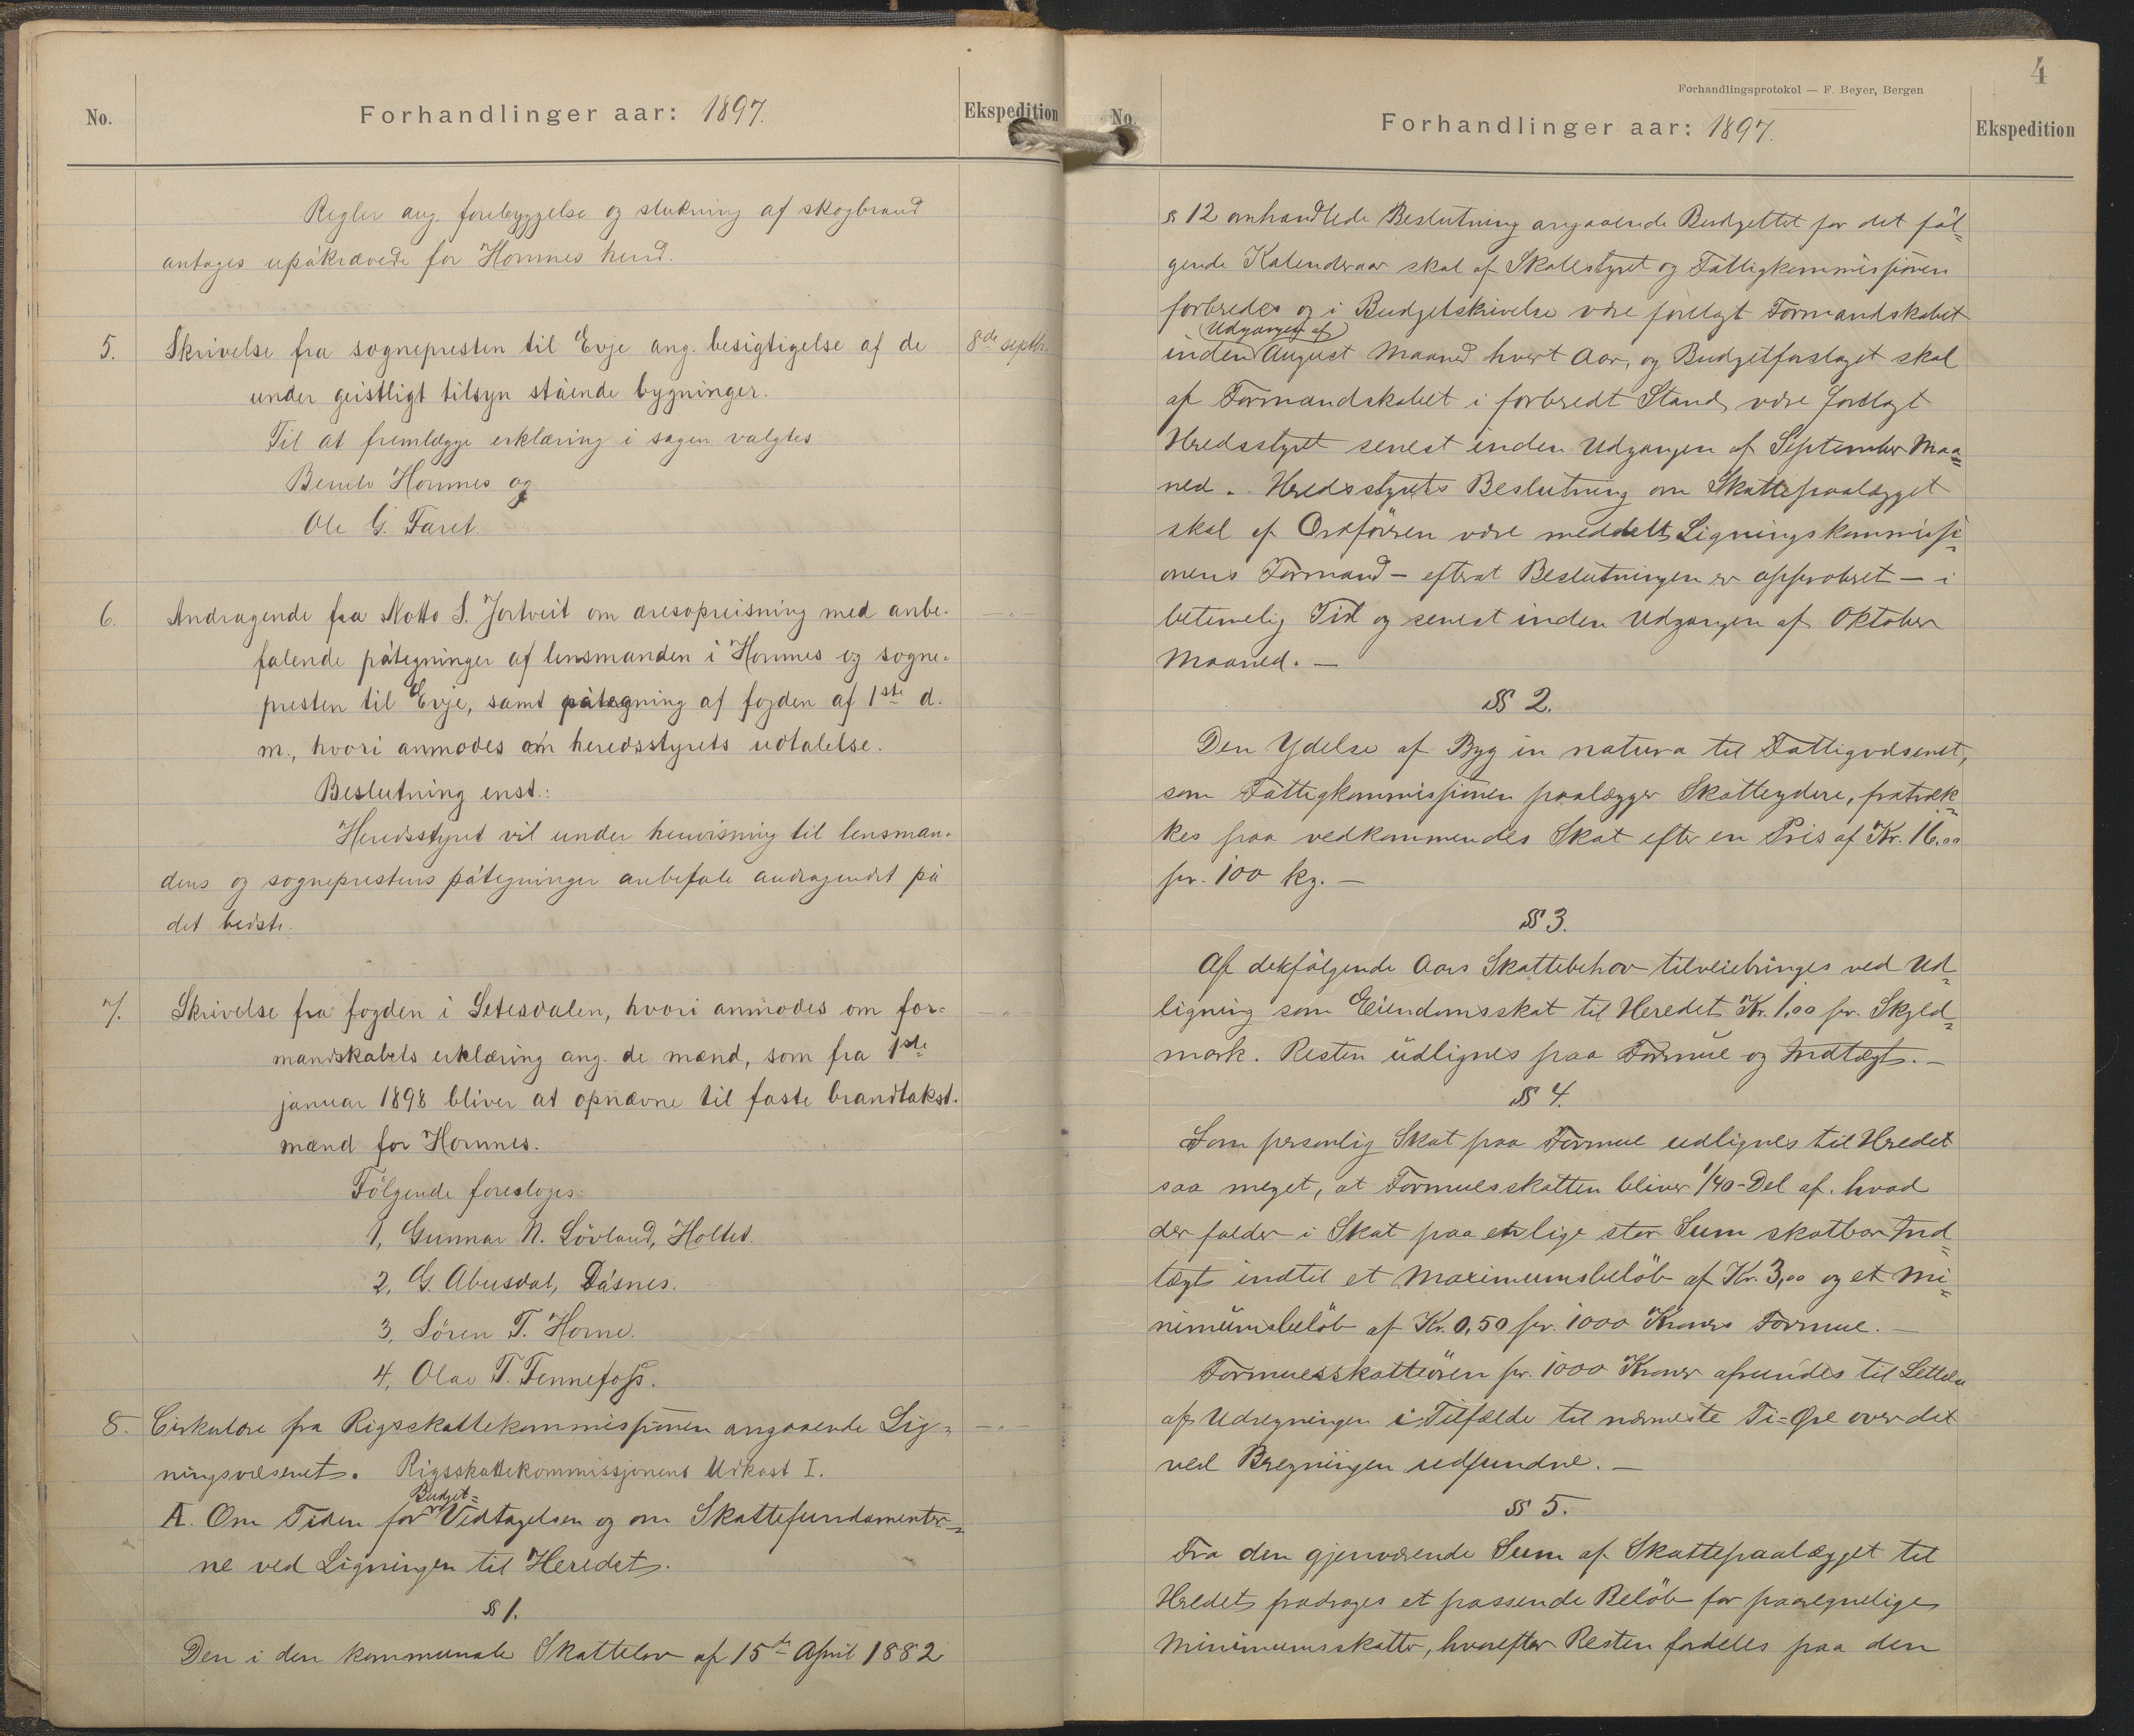 No.
Forhandlinger aar: 1897.
Ekspedition
Regler ang. forebyggelse og slukning af skogbrand
antages upåkrævede for Hornnes herred.
5. Skrivelse fra sognepresten til Evje ang. besigtigelse af de 8de septbr.
under geistligt tilsyn stående bygninger.
Til at fremlægge erklæring i sagen valgtes
Hornnes og
Ole G. Faret.
6. Andragende fra Notto S. Jortveit om æresopreisning med anbe-
falende påtegninger af lensmanden i Hornnes og sogne-
presten til Evje, samt påtegning af fogden af 1ste d.
m., hvori anmodes om heredsstyrets udtalelse.
Beslutning enst.:
Heredsstyret vil under henvisning til lensman-
dens og sogneprestens påtegninger anbefale andragendet på
det bedste.
7. Skrivelse fra fogden i Setesdalen, hvori anmodes om for-
mandskabets erklæring ang. de mænd, som fra 1ste
januar 1898 bliver at opnævne til faste brandtakst-
mænd for Hornnes.
Følgende foresloges:
1, Gunnar N. Lövland, Holtet.
2, G. Abusdal, Dåsnes.
3, Sören T. Horne.
4, Olav T. Fennefoss.
8. Cirkulære fra Rigsskattekommissjonen angaaende Lig-
ningsvæsenet. Rigsskattekommissjonens Udkast I.
Budget=
A. Om Tiden for Vedtagelsen og om Skattefundamenter=
ne ved Ligningen til Heredet.
§ 1.
Den i den kommunale Skattelov af 15de April 1882
4
Forhandlingsprotokol — F. Beyer, Bergen
No.
Forhandlinger aar: 1897.
Ekspedition
§ 12 omhandlede Beslutning angaaende Budgettet for det föl=
gende Kalenderaar skal af Skolestyret og Fattigkommissjonen
forberedes og i Budgetskrivelse være forelagt Formandskabet
(Udgangen af)
inden August Maaned hvert Aar, og Budgetforslaget skal
af Formandskabet i forberedt Stand være forelagt
Heredsstyret senest inden Udgangen af September Maa=
ned. Heredsstyrets Beslutning om Skattepaalægget
skal af Ordföreren være meddelt Ligningskommissi=
onens Formand – efterat Beslutningen er approberet – i
betimelig Tid og senest inden Udgangen af Oktober
Maaned. –
§§ 2.
Den Ydelse af Byg in natura til Fattigvæsenet,
som Fattigkommissjonen paalægger Skatteydere, fratræk=
kes paa vedkommendes Skat efter en Pris af Kr. 16.00
pr. 100 kg. –
§§ 3.
Af detfølgende Aars Skattebehov tilveiebringes ved Ud=
ligning som Eiendomsskat til Heredet Kr. 1,00 pr. Skyld=
mark. Resten udlignes paa Formue og Indtægt. –
§§ 4.
Som personlig Skat paa Formue udlignes til Heredet
saa meget, at Formuesskatten bliver 1/40-Del af hvad
der falder i Skat paa en lige stor Sum skatbar Ind=
tægt indtil et Maximumsbelöb af Kr. 3,00 og et Mi=
nimumsbelöb af Kr. 0,50 pr. 1000 Kroners Formue. –
Formuesskatteören pr. 1000 Kroner afrundes til Lettelse
af Udregningen i Tilfælde til nærmeste Ti=Øre over det
ved Beregningen udfundne. –
§§ 5.
Fra den gjenværende Sum af Skattepaalægget til
Heredet fradrages et passende Belöb for paaregnelige
Minimumsskatter, hvorefter Resten fordeles paa den